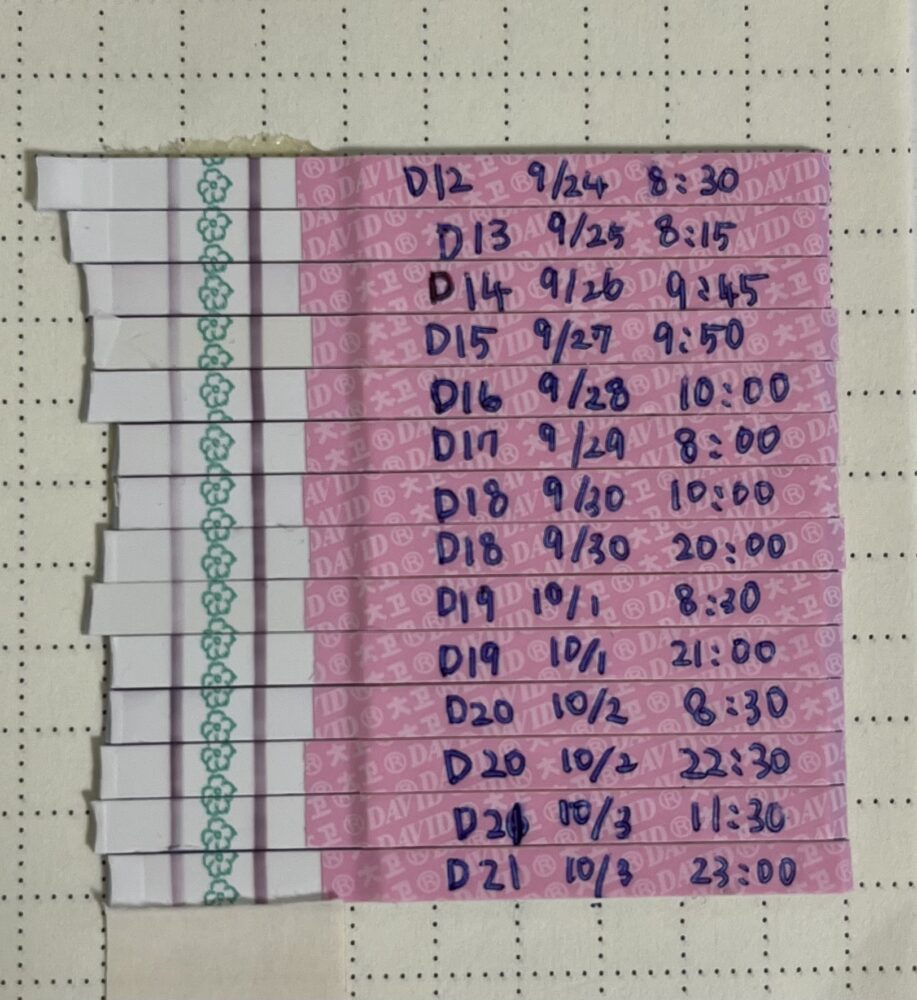 D12 9/24 8:30
D13 9/25 8:15
D14 9/26 9:45
D15 9/27 9:50
D16 9/28 10:00
D17 9/29 8:00
D18 9/30 10:00
D18 9/30 20:00
D19 10/1 8:30
D19 10/1 21:00
D20 10/2 8:30
D20 10/2 22:30
D21 10/3 11:30
D21 10/3 23:00
大卫® DAVID®